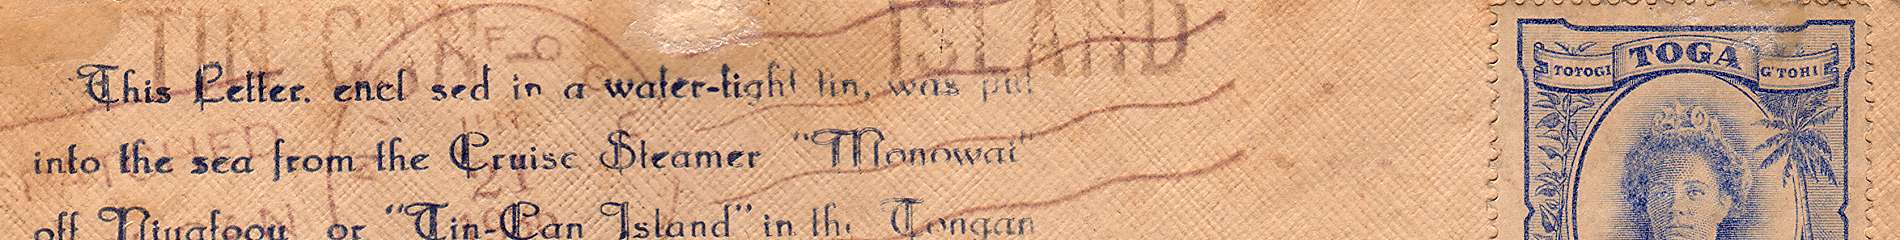 TIN CAN ISLAND
This Letter. encl sed in a water-tight tin, was put
into the sea from the Cruise Steamer "Monowai"
off Niuafoou or "Tin-Can Island" in the Tongan
TOGA
TOTOGI G'TOHI